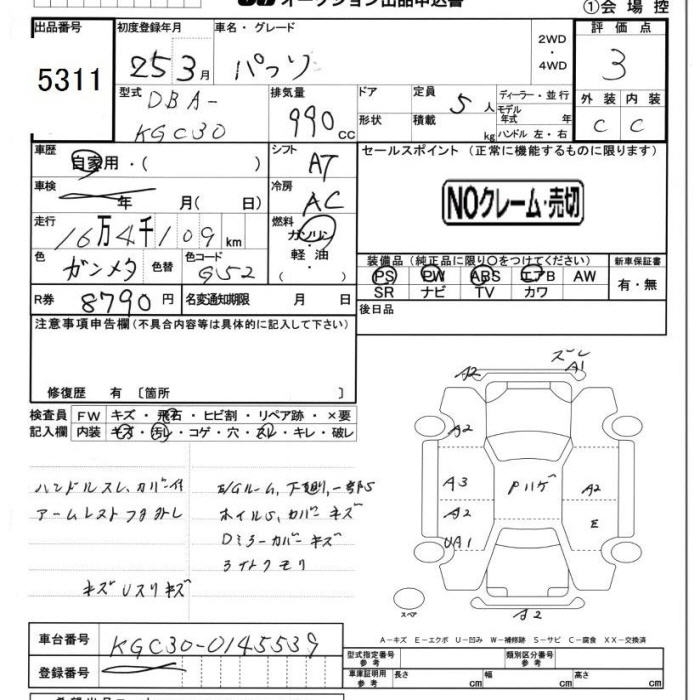 オークション出品申込書
①会場控
出品番号 初度登録年月 車名・グレード 2WD・4WD 評価点
5311 25 3月 パッソ 3
型式 DBA-KGC30 排気量 990 cc ドア 形状 定員 5人 積載 kg ディーラー・並行 モデル年式 年 ハンドル 左・右 外装 C 内装 C
車歴 自家用・( ) シフト AT セールスポイント (正常に機能するものに限ります)
車検 年 月( 日) 冷房 AC
NOクレーム・売切
走行 16万4千109km 燃料 ガソリン・軽油 ( )
装備品 (純正品に限り○をつけてください) 新車保証書
色 ガンメタ 色替 色コード G52
PS PW ABS エアB AW 有・無
SR ナビ TV カワ
R券 8790円 名変通知期限 月 日
後日品
注意事項申告欄(不具合内容等は具体的に記入して下さい)
修復歴 有 〔箇所 〕
検査員 FW キズ・飛石・ヒビ割・リペア跡・×要
記入欄 内装 キズ・汚レ・コゲ・穴・スレ・キレ・破レ
ハンドルスレ、カバー付
E/Gルーム、下廻り、一部S
ホイルS、カバーキズ
Dミラーカバーキズ
ライトクモリ
キズUスリキズ
ズレ
A2 A1
A2
A3 Pハゲ A2
A2 E
UA1
スペア
A2
A-キズ E-エクボ U-凹み W-補修跡 S-サビ C-腐食 XX-交換済
車台番号 KGC30-0145539
型式指定番号 参考 類別区分番号 参考
登録番号
車庫証明用 参考 長さ cm 幅 cm 高さ cm